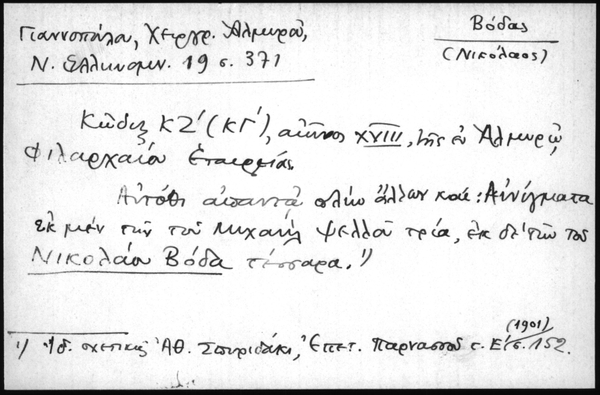 Γιαννοπούλου, Χειργρ. Ἁλμυροῦ,
Ν. Ἑλληνομν. 19 σ. 371
Βόδας
(Νικόλαος)
Κῶδιξ ΚΖ' (ΚΓ'), αἰῶνος XVIII, τῆς ἐν Ἁλμυρῷ
Φιλαρχαίου Ἑταιρείας.
Αὐτόθι ἀπαντᾷ πλὴν ἄλλων καὶ: Αἰνίγματα
ἐκ μὲν τῶν τοῦ Μιχαὴλ Ψελλοῦ τρία, ἐκ δὲ τῶν τοῦ
Νικολάου Βόδα τέσσαρα. 1)
1) Ἰδ. σχετικῶς Ἀθ. Σπυριδάκι, Ἐπετ. Παρνασσοῦ τ. Ε' (1901) σ. 152.